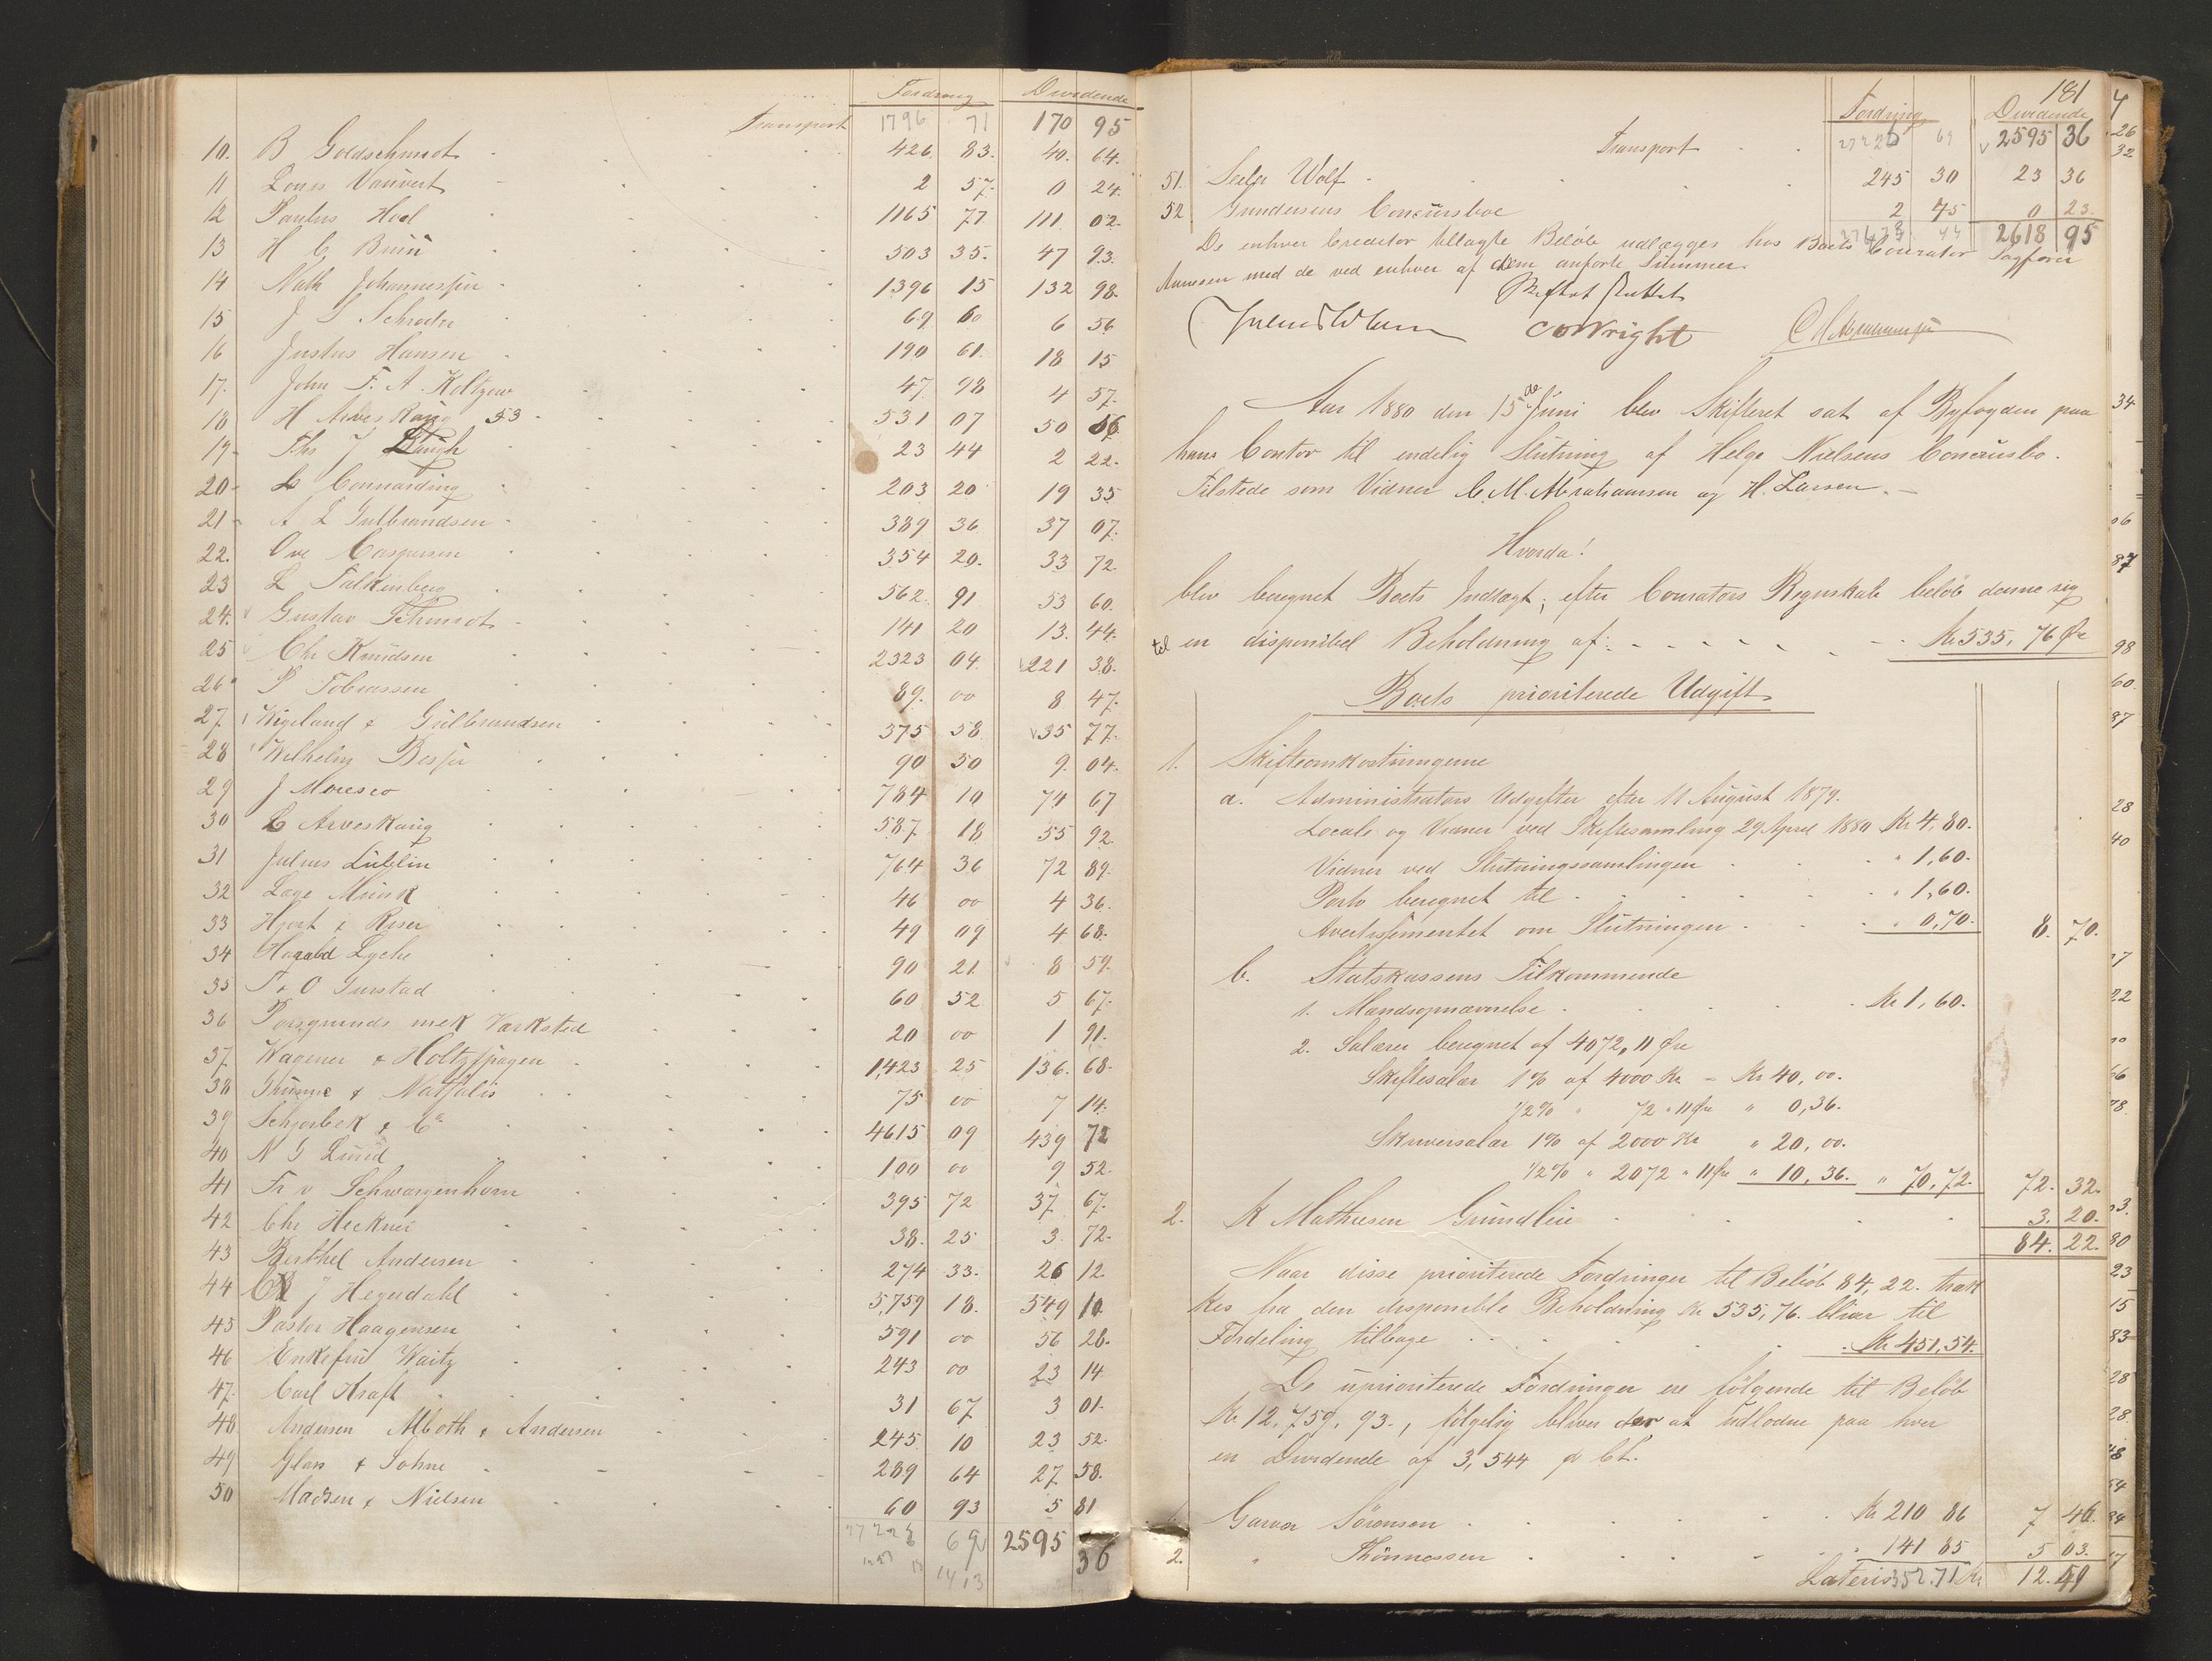 Fordring Dividende
Transport 1796 71 170 95
10. B Goldschmidt 426. 83. 40. 64.
11 Louis Vauvert 2 57. 0 24.
12 Paulus Hoel 1165 77 111 02.
13 H C Bruun 503 35. 47 93.
14 Math Johannessen 1396 15 132 98.
15 J S Schrøder 69 60 6 56
16 Justus Hansen 190 61. 18 15
17. John F. A. Koltzow 47. 98 4 57.
18 H Arveskoug 53 531 07 50 56
19 Ths J 23 44 2 22.
20 203 20 19 35
21 A L Gulbrandsen 389 36 37 07.
22. Ove Caspersen 354 20. 33 72.
23 L Falkenberg 562. 91 53 60.
24. Gustav Schmidt 141 20 13. 44.
25 Chr Knudsen 2323 04. 221 38.
26 P Tobiassen 89. 00 8 47.
27 Wigeland & Gulbrandsen 375 58 35 77.
28 Wilhelm 90 50 9. 04.
29 J Moresco 784 10 74 67
30 Arveskoug 587 18 55 92
31 Julius Lublin 764 36 72 89.
32 Lage Munk 46 00 4 36.
33 Hjort & Riser 49 09 4 68.
34 Harald Lyche 90 21. 8 59.
35 T & O 60 52 5 67.
36 Porsgrunds mek Værksted 20 00 1 91.
37. Wagener & 1,423 25 136. 68.
38 & 75 00 7 14.
39 Schjorbek & Co 4615 09 439 72
40 N J Lund 100 00 9 52.
41 Fr v Schwarzenhorn 395 72 37 67.
42 Chr 38. 25 3. 72.
43 Berthel Andersen 274 33. 26 12.
44 J Hegerdahl 5,759 18. 549 10.
45 Pastor Haagensen 591 00 56 28.
46 Enkefru Waitz 243 00 23 14
47. Carl Kraft 31 67 3 01.
48 Andersen & Andersen 245. 10 23 52.
49 Glan & Sohne 289 64 27 58.
50 Madsen & Nielsen 60 93 5 81
69 2595 36
181
Fordring Dividende
Transport 69 2595 36
51. Wolf 245 30 23 36
52 Gundersens Concursboe 2 45 0 23.
2618 95
De enhver Creditor tillagte Beløb udlægges hos Boets Courator Sagfører
med de ved enhver af dem anførte Summer.
Skiftet sluttet
CWright CMAbrahamsen
Aar 1880 den 15de Juni blev Skifteret sat af Byfogden paa
hans Contor til endelig Slutning af Helge Nielsens Concursbo.
Tilstede som Vidner C. M. Abrahamsen og H. Larsen.
Hvorda!
blev beregnet Boets Indtægt; efter Courators Regnskab beløb denne sig
til en disponibel Beholdning af: Kr 535, 76 Øre
Boets prioriterede Udgift
1. Skifteomkostningerne
a. Administrators Udgifter efter 11 August 1879.
Locale og Vidner ved Skiftesamling 29 April 1880 Kr 4, 80.
Vidner ved Slutningssamlingen " 1,60.
Porto beregnet til " 1,60.
Avertissementet om Slutningen " 0,70. 8. 70.
b. Statskassens Tilkommende
1. Mandsopnævnelse Kr 1, 60.
2. Salærer beregnet af 4072, 11 Øre
Skiftesalær 1% af 4000 Kr - Kr 40, 00.
1/2% " 72 " 11 Øre " 0,36.
Skriversalær 1% af 2000 Kr " 20, 00.
1/2% " 2072 " 11 Øre " 10, 36. " 70, 72. 72. 32.
2. K Mathiesen Grundleie 3. 20.
84. 22.
Naar disse prioriterede Fordringer til Beløb 84, 22. træk
kes fra den disponible Beholdning Kr 535, 76. bliver til
Fordeling tilbage Kr 451, 54.
De uprioriterede Fordringer ere følgende til Beløb
Kr 12,759. 93., følgelig bliver der at udlodne paa hver
en Dividende af 3, 544 p Ct.
1. Garver Sørensen Kr 210 86 7 46.
2. " Thønnessen " 141 85 5 03.
Lateris 352.71 Kr 12. 49